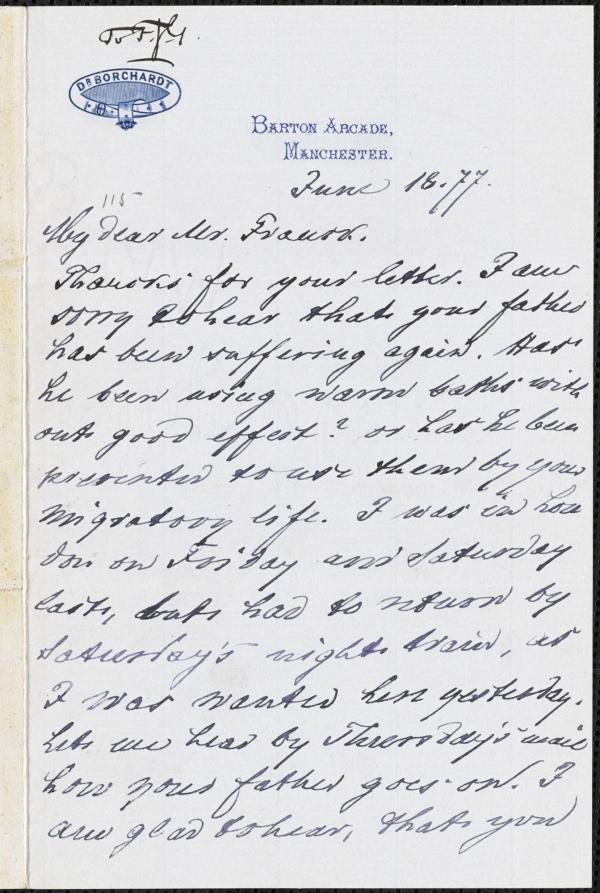 DR BORCHARDT
BARTON ARCADE,
MANCHESTER.
June 18.77.
115
My dear Mr. Franck.
Thancks for your letter. I am
sorry to hear that your father
has been suffering again. Has
he been using warm baths with
out good effect? or has he been
prevented to use them by your
migratory life. I was in Lon
don on Friday and Saturday
last, but had to return by
Saturday's night train, as
I was wanted here yesterday.
Let me hear by Thursday's mail
how your father goes on. I
am glad to hear, that you